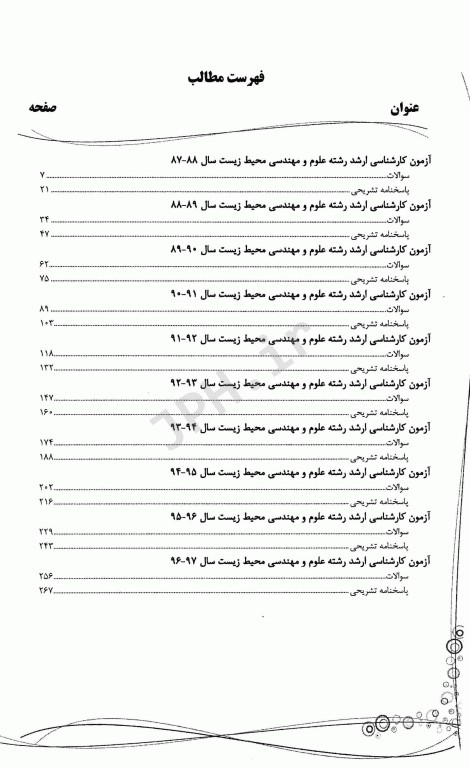 فهرست مطالب
عنوان صفحه
آزمون کارشناسی ارشد رشته علوم و مهندسی محیط زیست سال ۸۸-۸۷
سوالات ۷
پاسخنامه تشریحی ۲۱
آزمون کارشناسی ارشد رشته علوم و مهندسی محیط زیست سال ۸۹-۸۸
سوالات ۳۴
پاسخنامه تشریحی ۴۷
آزمون کارشناسی ارشد رشته علوم و مهندسی محیط زیست سال ۹۰-۸۹
سوالات ۶۲
پاسخنامه تشریحی ۷۵
آزمون کارشناسی ارشد رشته علوم و مهندسی محیط زیست سال ۹۱-۹۰
سوالات ۸۹
پاسخنامه تشریحی ۱۰۳
آزمون کارشناسی ارشد رشته علوم و مهندسی محیط زیست سال ۹۲-۹۱
سوالات ۱۱۸
پاسخنامه تشریحی ۱۳۲
آزمون کارشناسی ارشد رشته علوم و مهندسی محیط زیست سال ۹۳-۹۲
سوالات ۱۴۷
پاسخنامه تشریحی ۱۶۰
آزمون کارشناسی ارشد رشته علوم و مهندسی محیط زیست سال ۹۴-۹۳
سوالات ۱۷۴
پاسخنامه تشریحی ۱۸۸
آزمون کارشناسی ارشد رشته علوم و مهندسی محیط زیست سال ۹۵-۹۴
سوالات ۲۰۲
پاسخنامه تشریحی ۲۱۶
آزمون کارشناسی ارشد رشته علوم و مهندسی محیط زیست سال ۹۶-۹۵
سوالات ۲۲۹
پاسخنامه تشریحی ۲۴۳
آزمون کارشناسی ارشد رشته علوم و مهندسی محیط زیست سال ۹۷-۹۶
سوالات ۲۵۶
پاسخنامه تشریحی ۲۶۷
JPH.ir